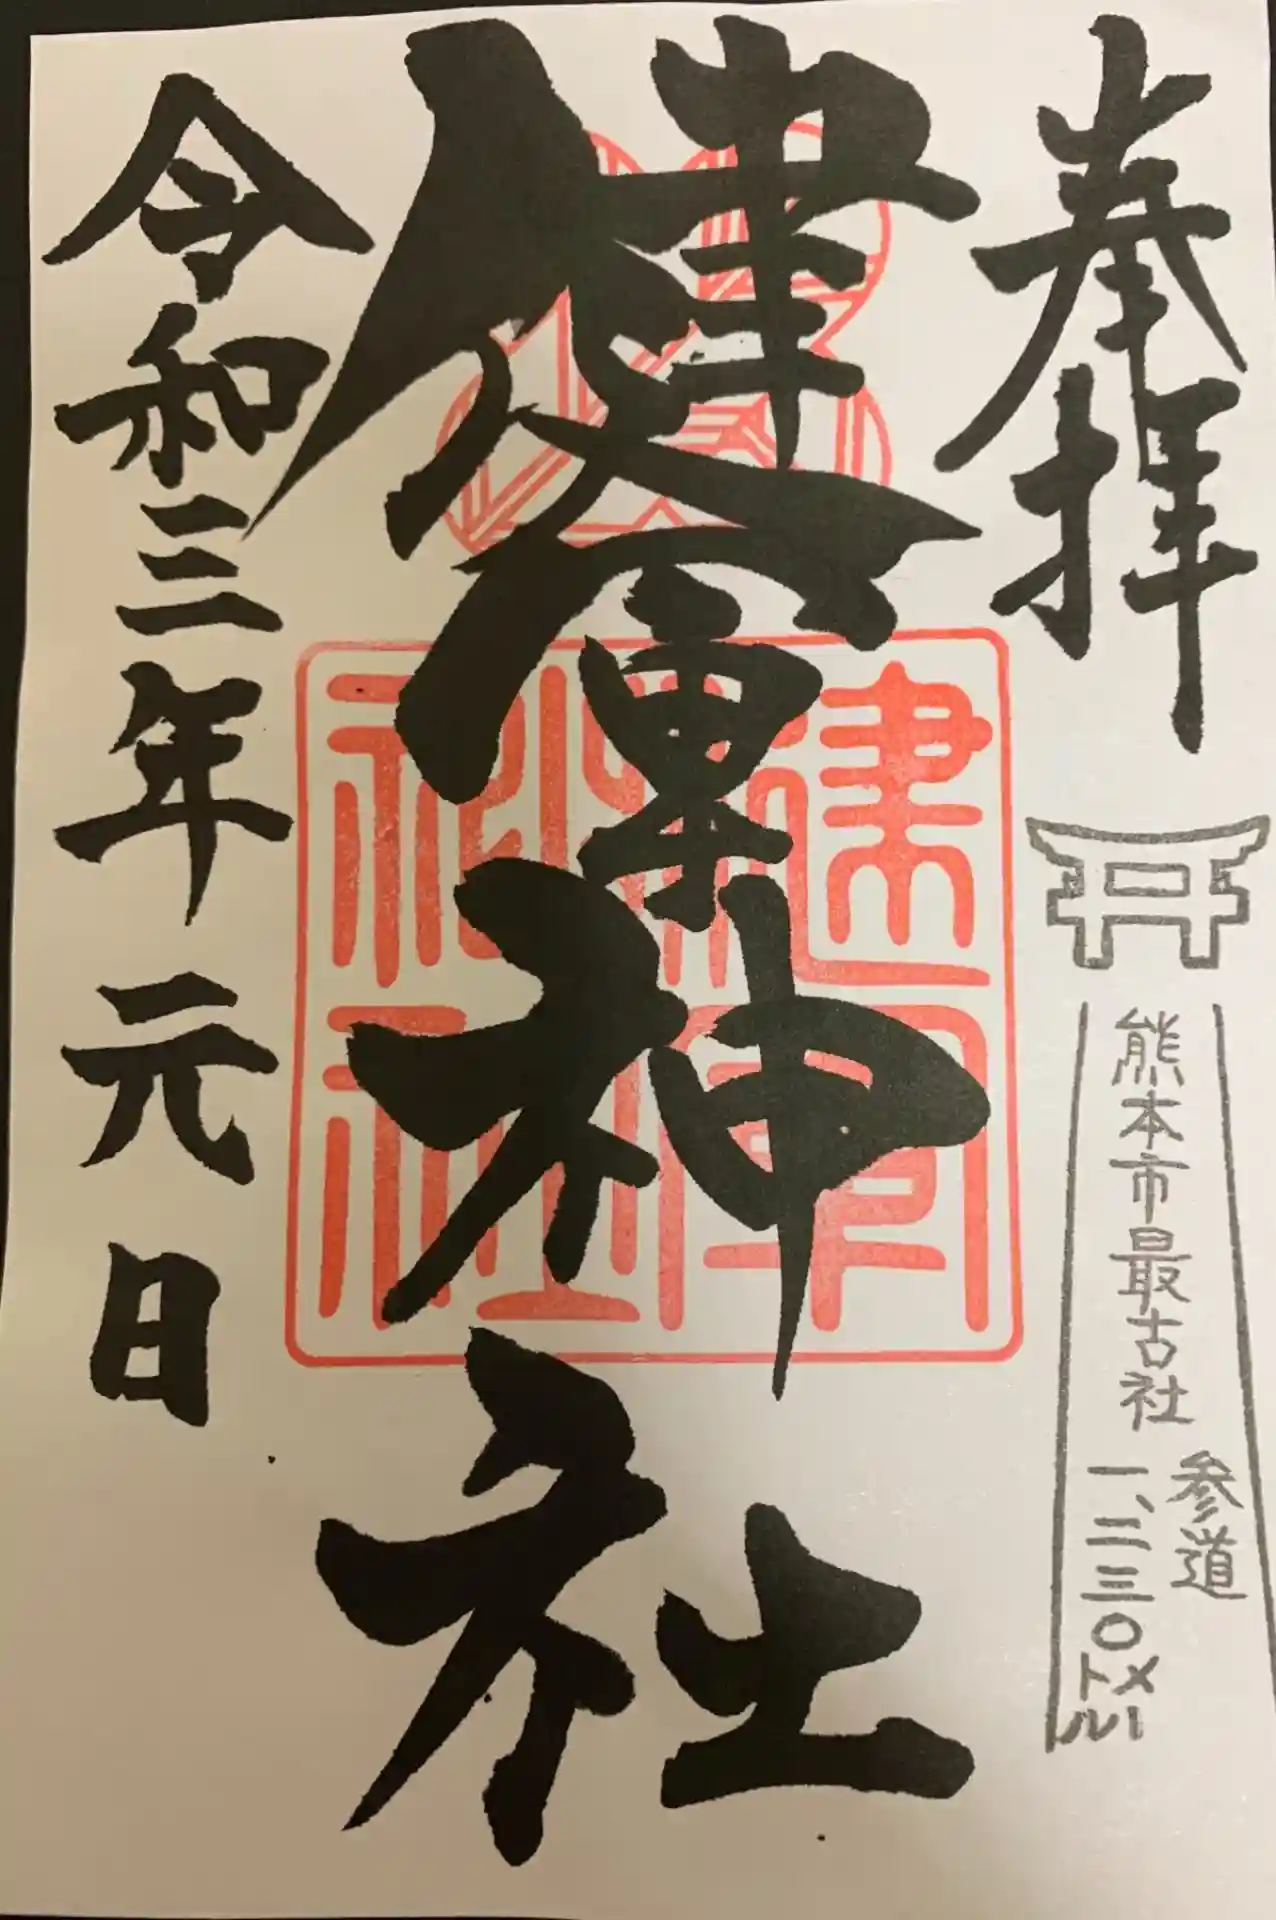 奉拝
熊本市最古社
参道
一、二三〇メートル
健軍神社
健軍
神社
令和三年元日